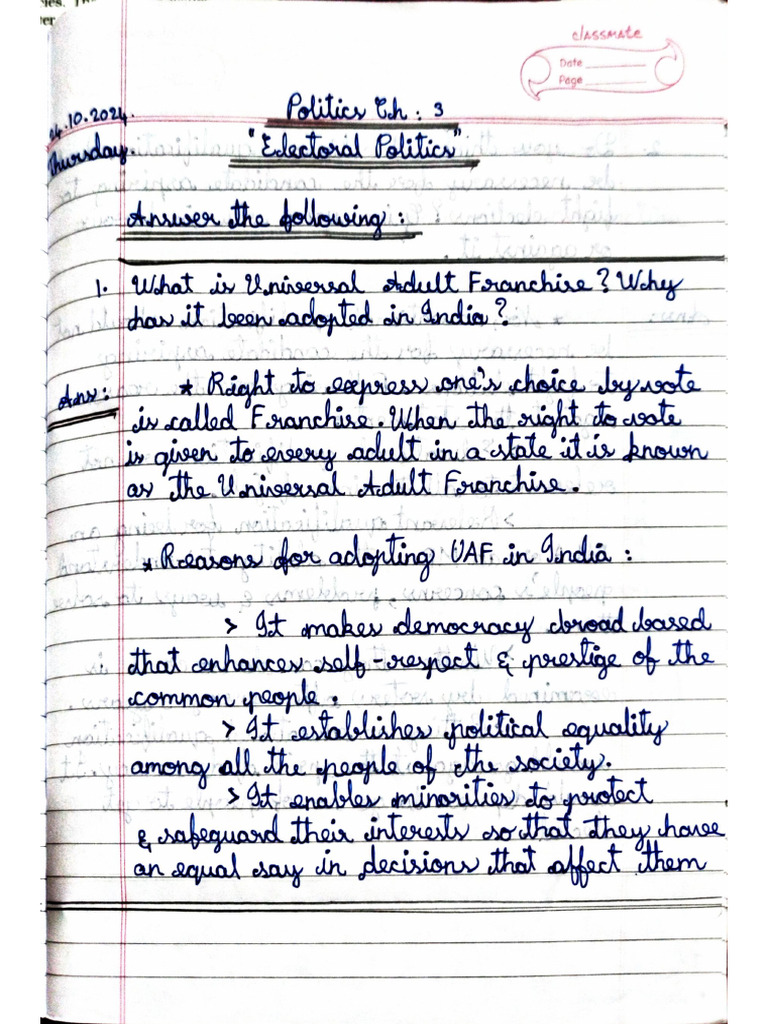 classmate
Date
Page
24.10.2024.
Thursday.
Politics Ch : 3
"Electoral Politics"
Answer the following :
1. What is Universal Adult Franchise? Why
has it been adopted in India?
Ans :
* Right to express one's choice by vote
is called Franchise. When the right to vote
is given to every adult in a state it is known
as the Universal Adult Franchise.
* Reasons for adopting UAF in India :
> It makes democracy broad based
that enhances self-respect & prestige of the
common people.
> It establishes political equality
among all the people of the society.
> It enables minorities to protect
& safeguard their interests so that they have
an equal say in decisions that affect them